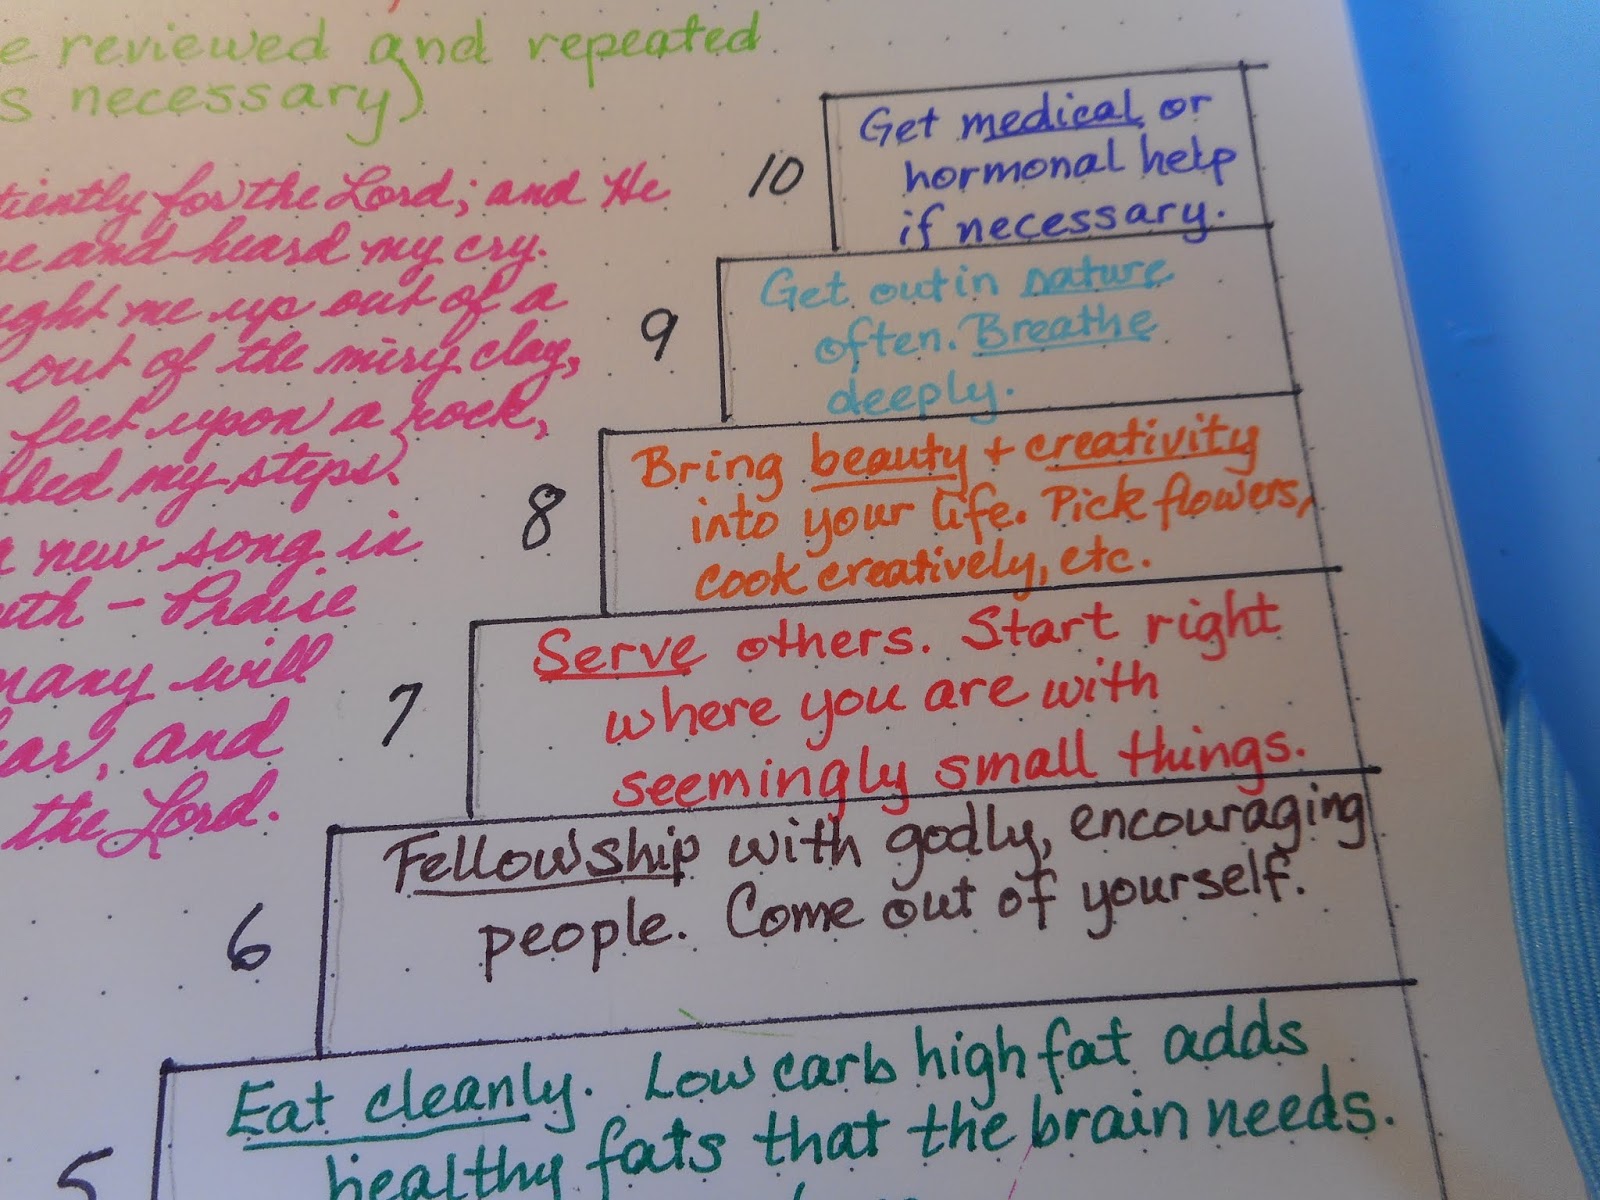 e reviewed and repeated
s necessary)
tiently for the Lord; and He
e and heard my cry.
ght me up out of a
out of the miry clay,
feet upon a rock,
hed my steps.
a new song in
uth - Praise
many will
ear, and
the Lord.
10
Get medical or
hormonal help
if necessary.
9
Get out in nature
often. Breathe
deeply.
8
Bring beauty + creativity
into your life. Pick flowers,
cook creatively, etc.
7
Serve others. Start right
where you are with
seemingly small things.
6
Fellowship with godly, encouraging
people. Come out of yourself.
5
Eat cleanly. Low carb high fat adds
healthy fats that the brain needs.